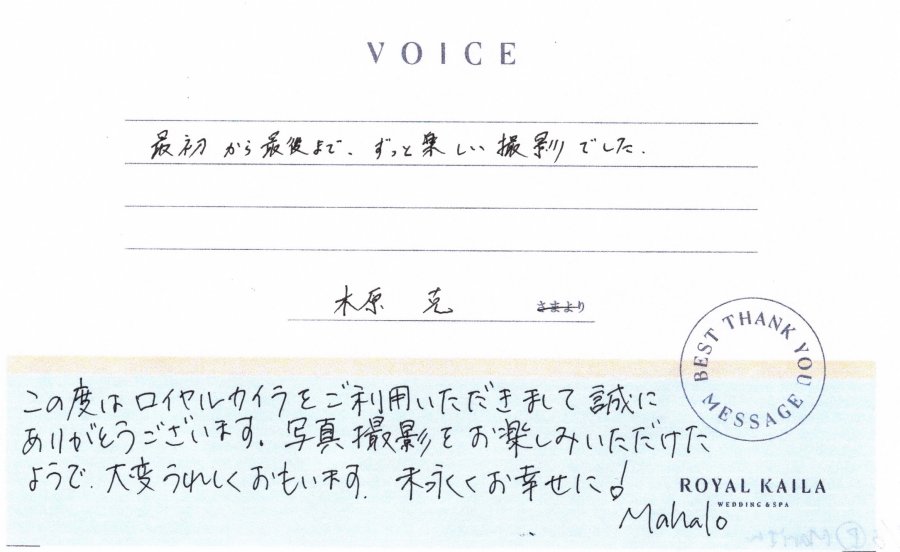 VOICE
最初から最後まで、ずっと楽しい撮影でした.
木原 克 さまより
BEST THANK YOU MESSAGE
この度はロイヤルカイラをご利用いただきまして誠に
ありがとうございます. 写真撮影をお楽しみいただけた
ようで、大変うれしくおもいます. 末永くお幸せに!
ROYAL KAILA
WEDDING & SPA
Mahalo